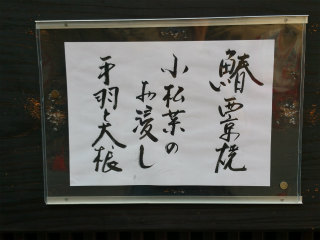 鰆西京焼
小松菜の
お浸し
手羽と大根